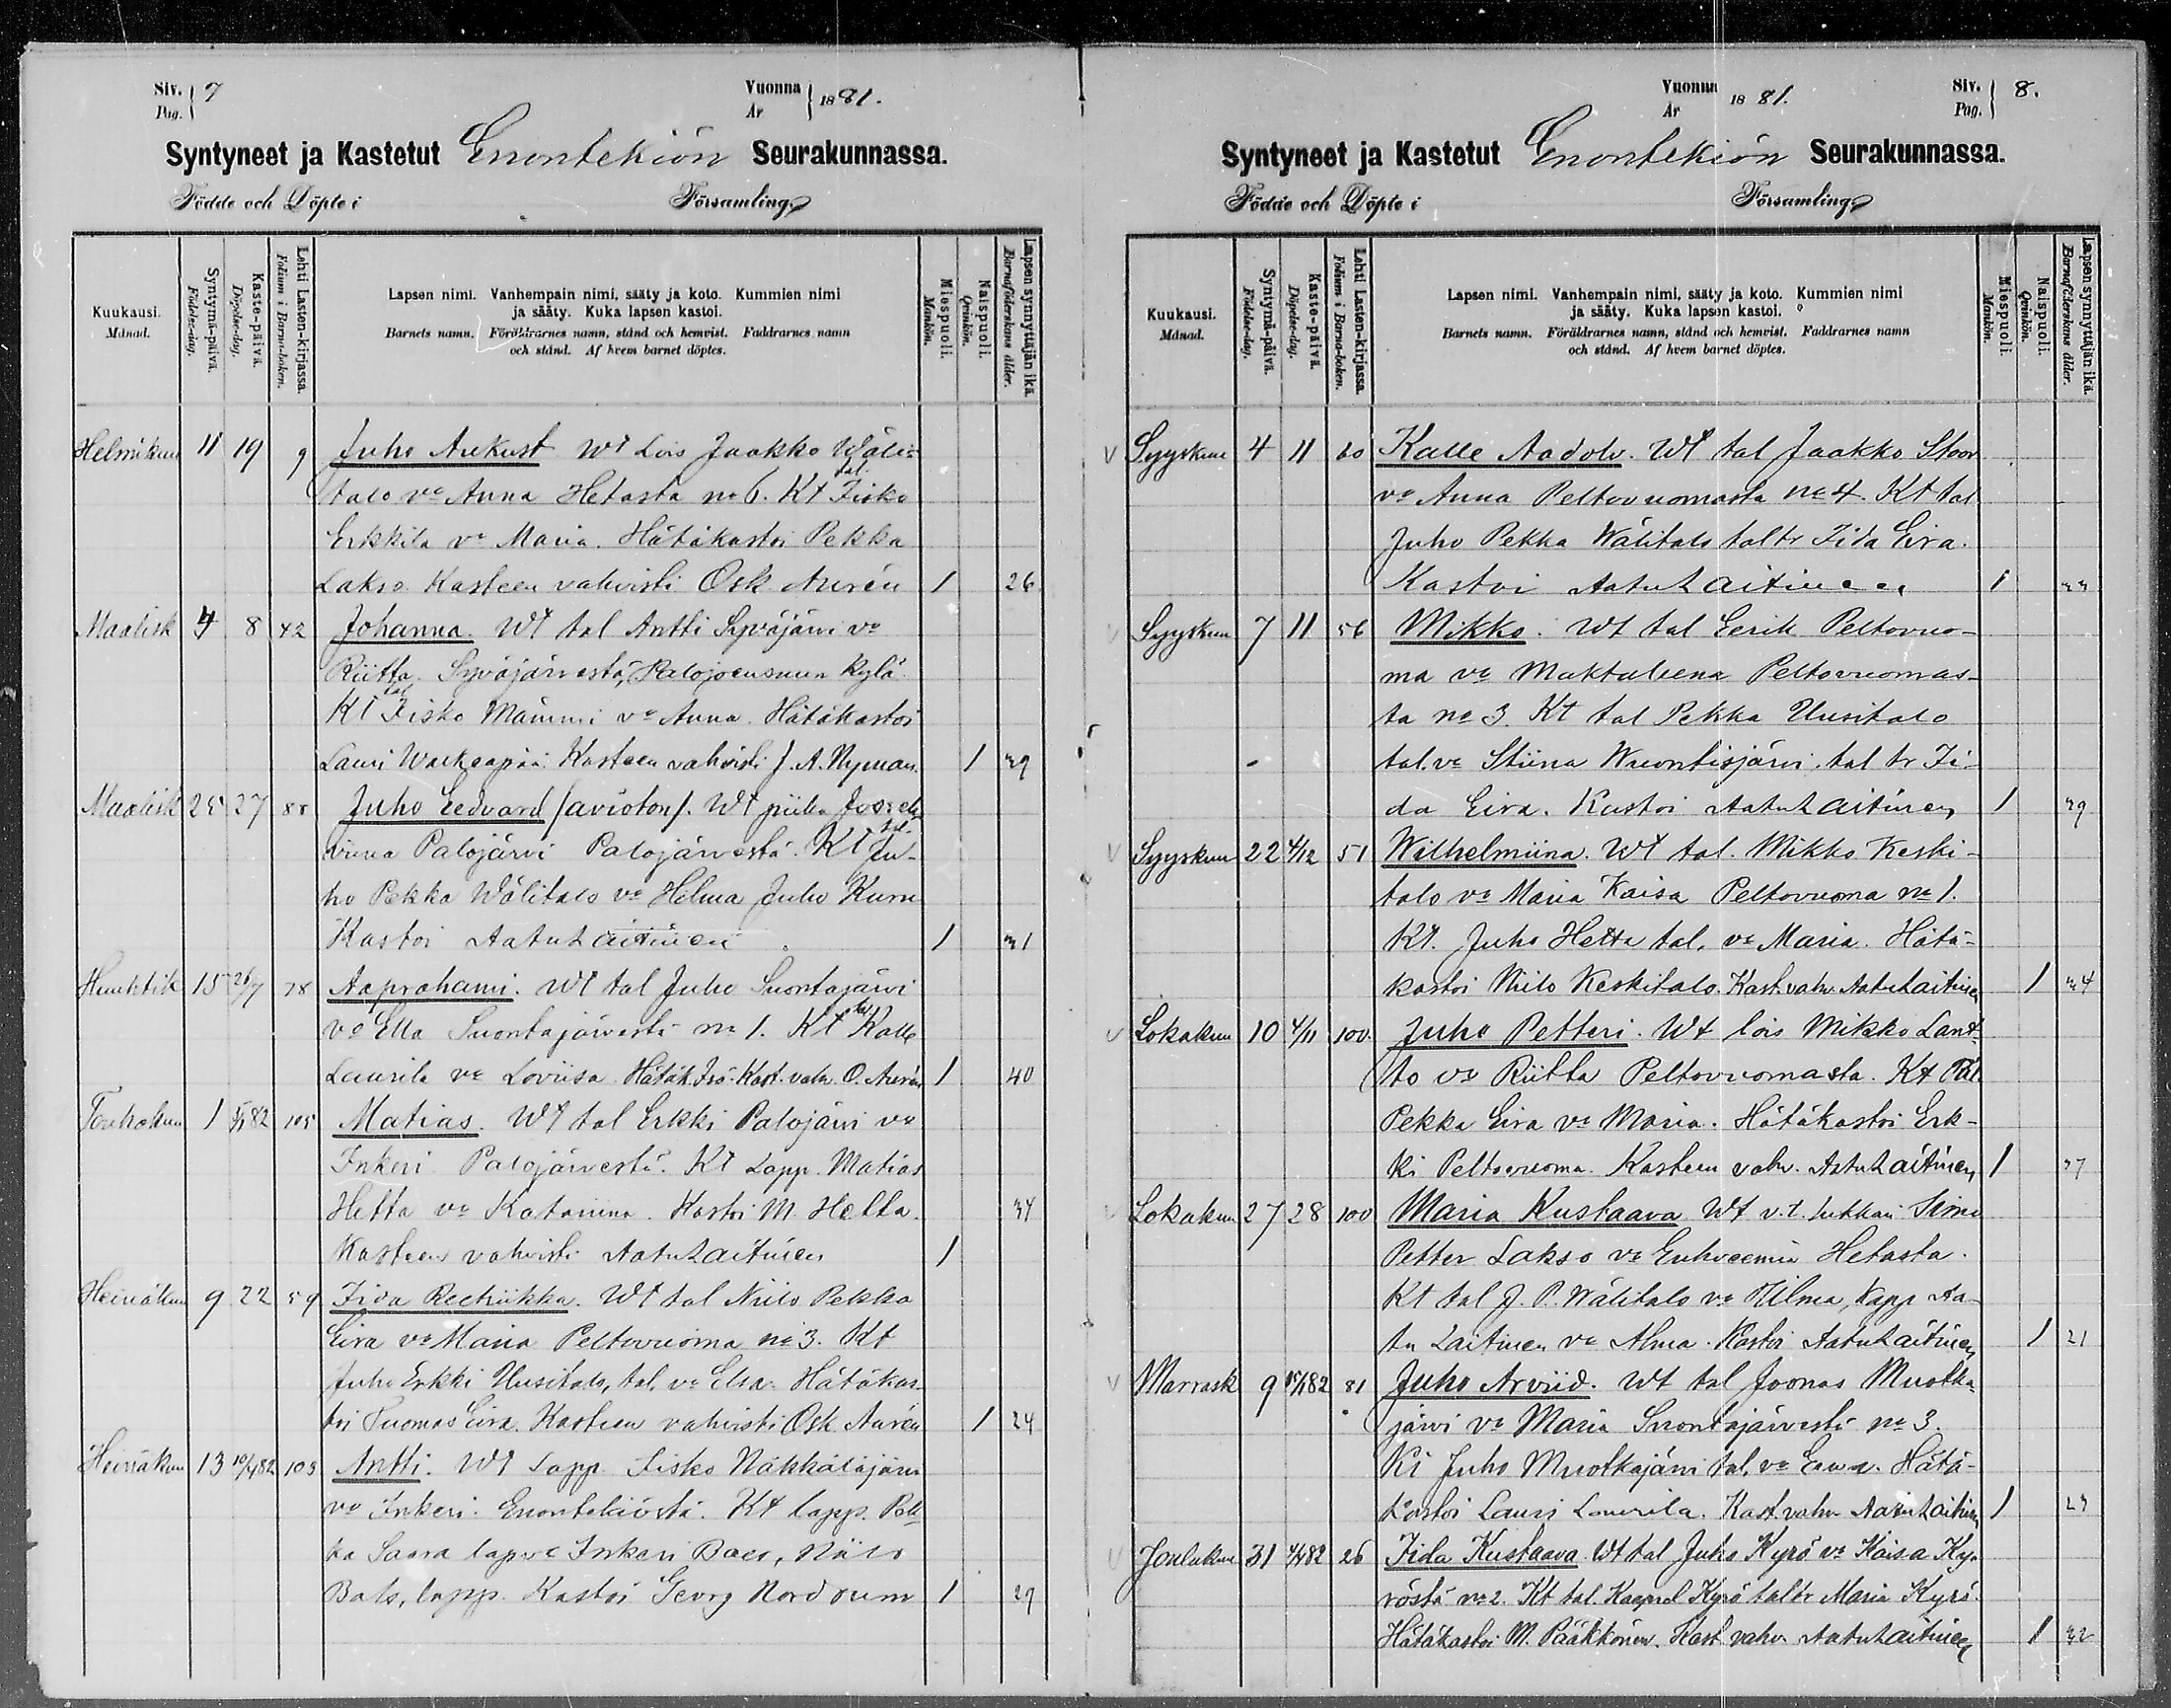 Siv. 7
Pag.
Vuonna 1881.
År
Syntyneet ja Kastetut Enontekiön Seurakunnassa.
Födde och Döpte i Församling
Kuukausi.
Månad.
Syntymä-päivä.
Födelse-dag.
Kaste-päivä.
Döpelse-dag.
Lehti Lasten-kirjassa.
Folium i Barna-boken.
Lapsen nimi. Vanhempain nimi, sääty ja koto. Kummien nimi
ja sääty. Kuka lapsen kastoi.
Barnets namn. Föräldrarnes namn, stånd och hemvist. Faddrarnes namn
och stånd. Af hvem barnet döptes.
Miespuoli.
Mankön.
Naispuoli.
Qvinkön.
Lapsen synnyttäjän ikä.
Barnaföderskans ålder.
Helmikuu 11 19 9 Juho Aukust Wt Lois Jaakko Wäli-
talo vo Anna Hetasta no 6. Kt tal. Fisko
Erkkila vo Maria. Hätäkastoi Pekka
Lakso. Kasteen vahvisti Osk Aurén 1 26
Maalisk 4 8 42 Johanna. Wt tal Antti Syväjärvi vo
Riitta Syväjärvestä, Palojoensuun kylä.
Kt tal Fisko Mämmi vo Anna. Hätäkastoi
Lauri Warkeapää. Kasteen vahvisti J. A. Nyman. 1 39
Maalisk 25 27 88 Juho Eedvard /avioton/. Wt piika
Palojärvi Palojärvestä. Kt tal. Ju-
ho Pekka Wälitalo vo Helma Juho Kuru
Kastoi Aatu Laitinen 1 31
Huuhtik 15 26/7 78 Aaprahami. Wt tal Juho Suontajärvi
vo Ella Suontajärvestä no 1. Kt tal Kalle
Laurila vo Loviisa Hätäk. Isä. Kast. vahv. O. Aurén 1 40
Toukokuu 1 82 105 Matias. Wt tal Erkki Palojärvi vo
Inkeri Palojärvestä. Kt Lapp. Matias
Hetta vo Katariina. Kastoi M. Hetta. 34
Kasteen vahvisti Aatu Laitinen 1
Heinäkuu 9 22 59 Fida Reetriikka. Wt tal Niilo Pekka
Eira vo Maria Peltovuoma no 3. Kt
Juho Erkki Uusitalo, tal. vo Elsa. Hätäkas-
toi Tuomas Eira. Kasteen vahvisti Osk. Aurén 1 24
Heinäkuu 13 10/4 82 103 Antti. Wt Lapp. Fisko Näkkäläjärvi
vo Inkeri. Enontekiöstä. Kt lapp. Pek
ka Saara lapp vo Inkeri Baer, Niilo
Bals, lapp. Kastoi Georg Nordrum 1 29
Vuonna 1881.
År
Siv. 8.
Pag.
Syntyneet ja Kastetut Enontekiön Seurakunnassa.
Födde och Döpte i Församling
Kuukausi.
Månad.
Syntymä-päivä.
Födelse-dag.
Kaste-päivä.
Döpelse-dag.
Lehti Lasten-kirjassa.
Folium i Barna-boken.
Lapsen nimi. Vanhempain nimi, sääty ja koto. Kummien nimi
ja sääty. Kuka lapsen kastoi.
Barnets namn. Föräldrarnes namn, stånd och hemvist. Faddrarnes namn
och stånd. Af hvem barnet döptes.
Miespuoli.
Mankön.
Naispuoli.
Qvinkön.
Lapsen synnyttäjän ikä.
Barnaföderskans ålder.
V Syyskuu 4 11 60 Kalle Aadolv. Wt tal Jaakko Stoor
vo Anna Peltovuomasta no 4. Kt tal
Juho Pekka Wälitalo taltr Fida Eira.
Kastoi Aatu Laitinen 1 33
V Syyskuu 7 11 56 Mikko. Wt tal Eerik Peltovuo-
ma vo Maktaleena Peltovuomas-
ta no 3. Kt tal Pekka Uusitalo
tal. vo Stiina Wuontisjärvi. tal tr Fi-
da Eira. Kastoi Aatu Laitinen 1 39
V Syyskuu 22 4/12 51 Wilhelmiina. Wt tal. Mikko Keski-
talo vo Maria Kaisa Peltovuoma no 1.
Kt. Juho Hetta tal. vo Maria. Hätä-
kastoi Niilo Keskitalo. Kast. vahv. Aatu Laitinen 1 34
V Lokakuu 10 4/11 100. Juho Petteri. Wt lois Mikko Lant-
to vo Riitta Peltovuomasta. Kt Tal.
Pekka Eira vo Maria. Hätäkastoi Erk-
ki Peltovuoma. Kasteen vahv. Aatu Laitinen 1 37
V Lokakuu 27 28 100 Maria Kustaava Wt v.t. lukkari Simo
Petter Lakso vo Enhveemia Hetasta.
Kt tal J. P. Wälitalo vo Hilma, Kapp Aa-
tu Laitinen vo Alma. Kastoi Aatu Laitinen 1 21
V Marrask 9 15/1 82 81 Juho Arviid. Wt tal Joonas Muotka-
järvi vo Maria Suontajärvestä no 3.
Kt Juho Muotkajärvi tal. vo Eeva. Hätä-
kastoi Lauri Laurila. Kast. vahv Aatu Laitinen 1 23
V Joulukuu 31 4/1 82 26 Fida Kustaava. Wt tal Juho Kyrö vo Kaisa Ky-
röstä no 2. Kt tal. Kaaprel Kyrö taltr Maria Kyrö.
Hätäkastoi M. Pääkkönen. Kast vahv. Aatu Laitinen 1 32